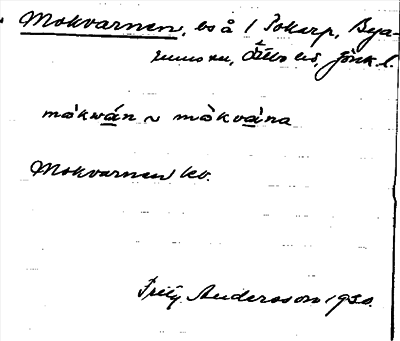 Mokvarnen, bs å 1 Pokarp, Bya-
rums sn, Östbo hd, Jönk. l.
mòkwán ~ mòkvána
Mokvarnen kv.
Fritz Andersson 1930.